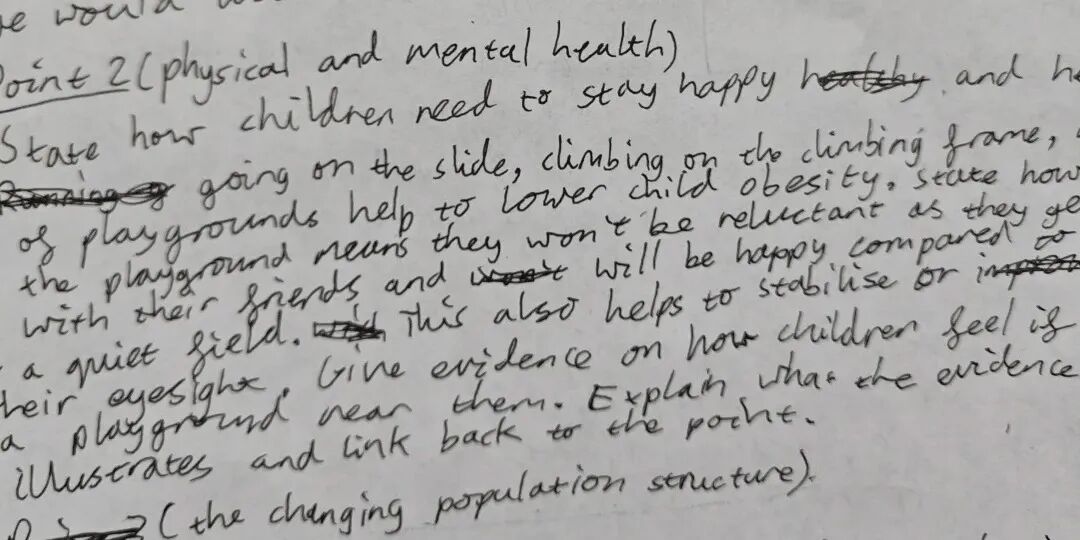 would
Point 2 (physical and mental health)
State how children need to stay happy healthy and
Running going on the slide, climbing on the climbing frame,
of playgrounds help to lower child obesity. State how
the playground means they won't be reluctant as they
with their friends and won't will be happy compared to
a quiet field. This also helps to stabilise or
their eyesight. Give evidence on how children feel if
a playground near them. Explain what the evidence
illustrates and link back to the point.
(the changing population structure).